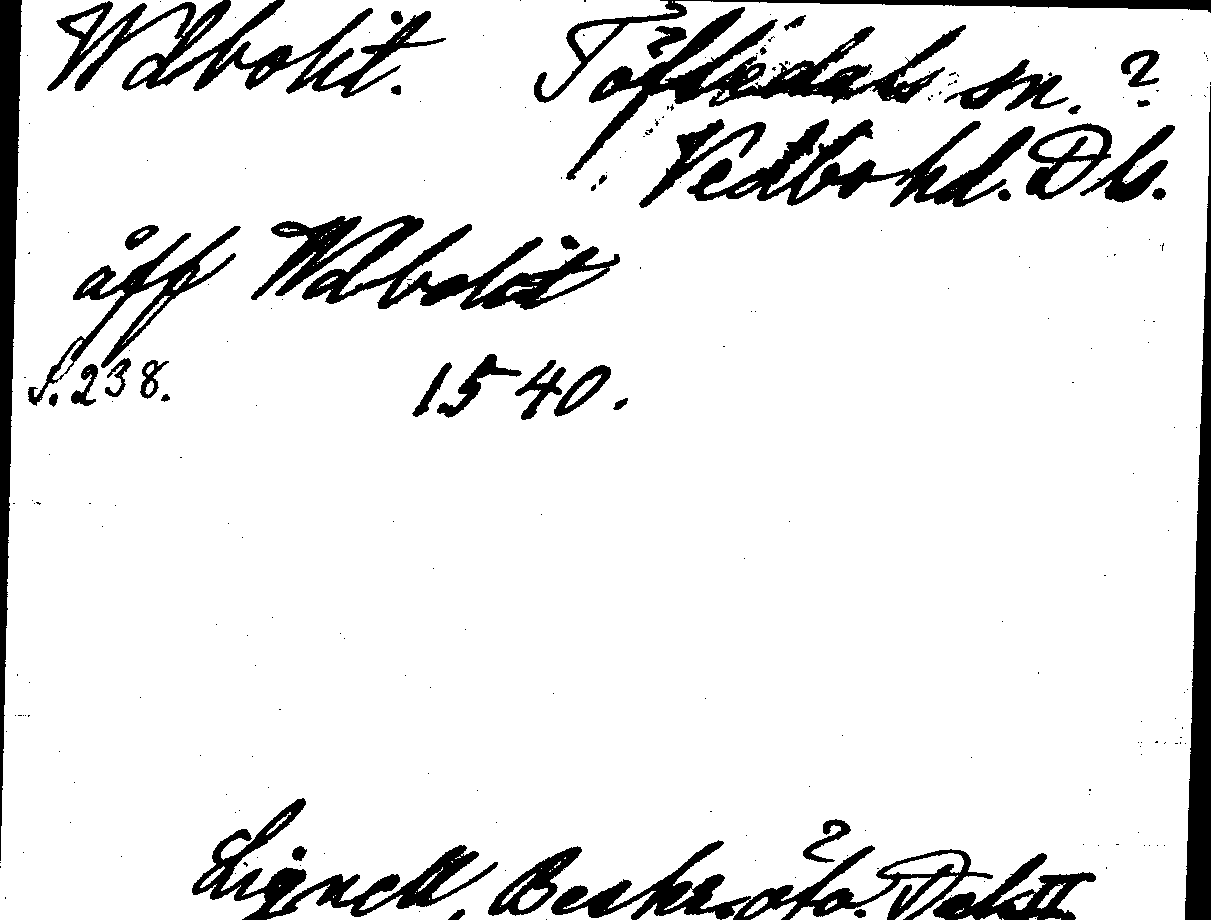 Wdbokit. Töftedals sn. ?
Vedbo hd. Dls.
åff Wdbokit
S. 238. 1540.
Lignell, Beskr. öfv. Dal II